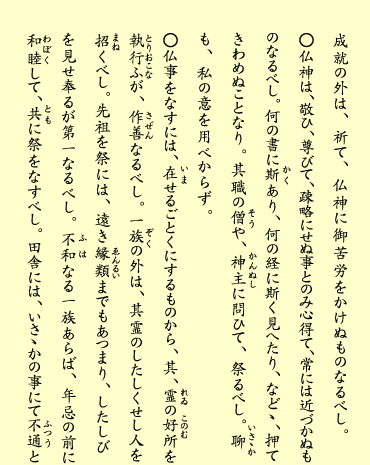 成就の外は、祈て、仏神に御苦労をかけぬものなるべし。
〇仏神は、敬ひ、尊びて、疎略にせぬ事とのみ心得て、常には近づかぬも
のなるべし。何の書に斯あり、何の経に斯く見へたり、などゝ、押て
きわめぬことなり。其職の僧や、神主に問ひて、祭るべし。聊
も、私の意を用べからず。
〇仏事をなすには、在せるごとくにするものから、其、霊の好所を
執行ふが、作善なるべし。一族の外は、其霊のしたしくせし人を
招くべし。先祖を祭には、遠き縁類までもあつまり、したしび
を見せ奉るが第一なるべし。不和なる一族あらば、年忌の前に
和睦して、共に祭をなすべし。田舎には、いさゝかの事にて不通と